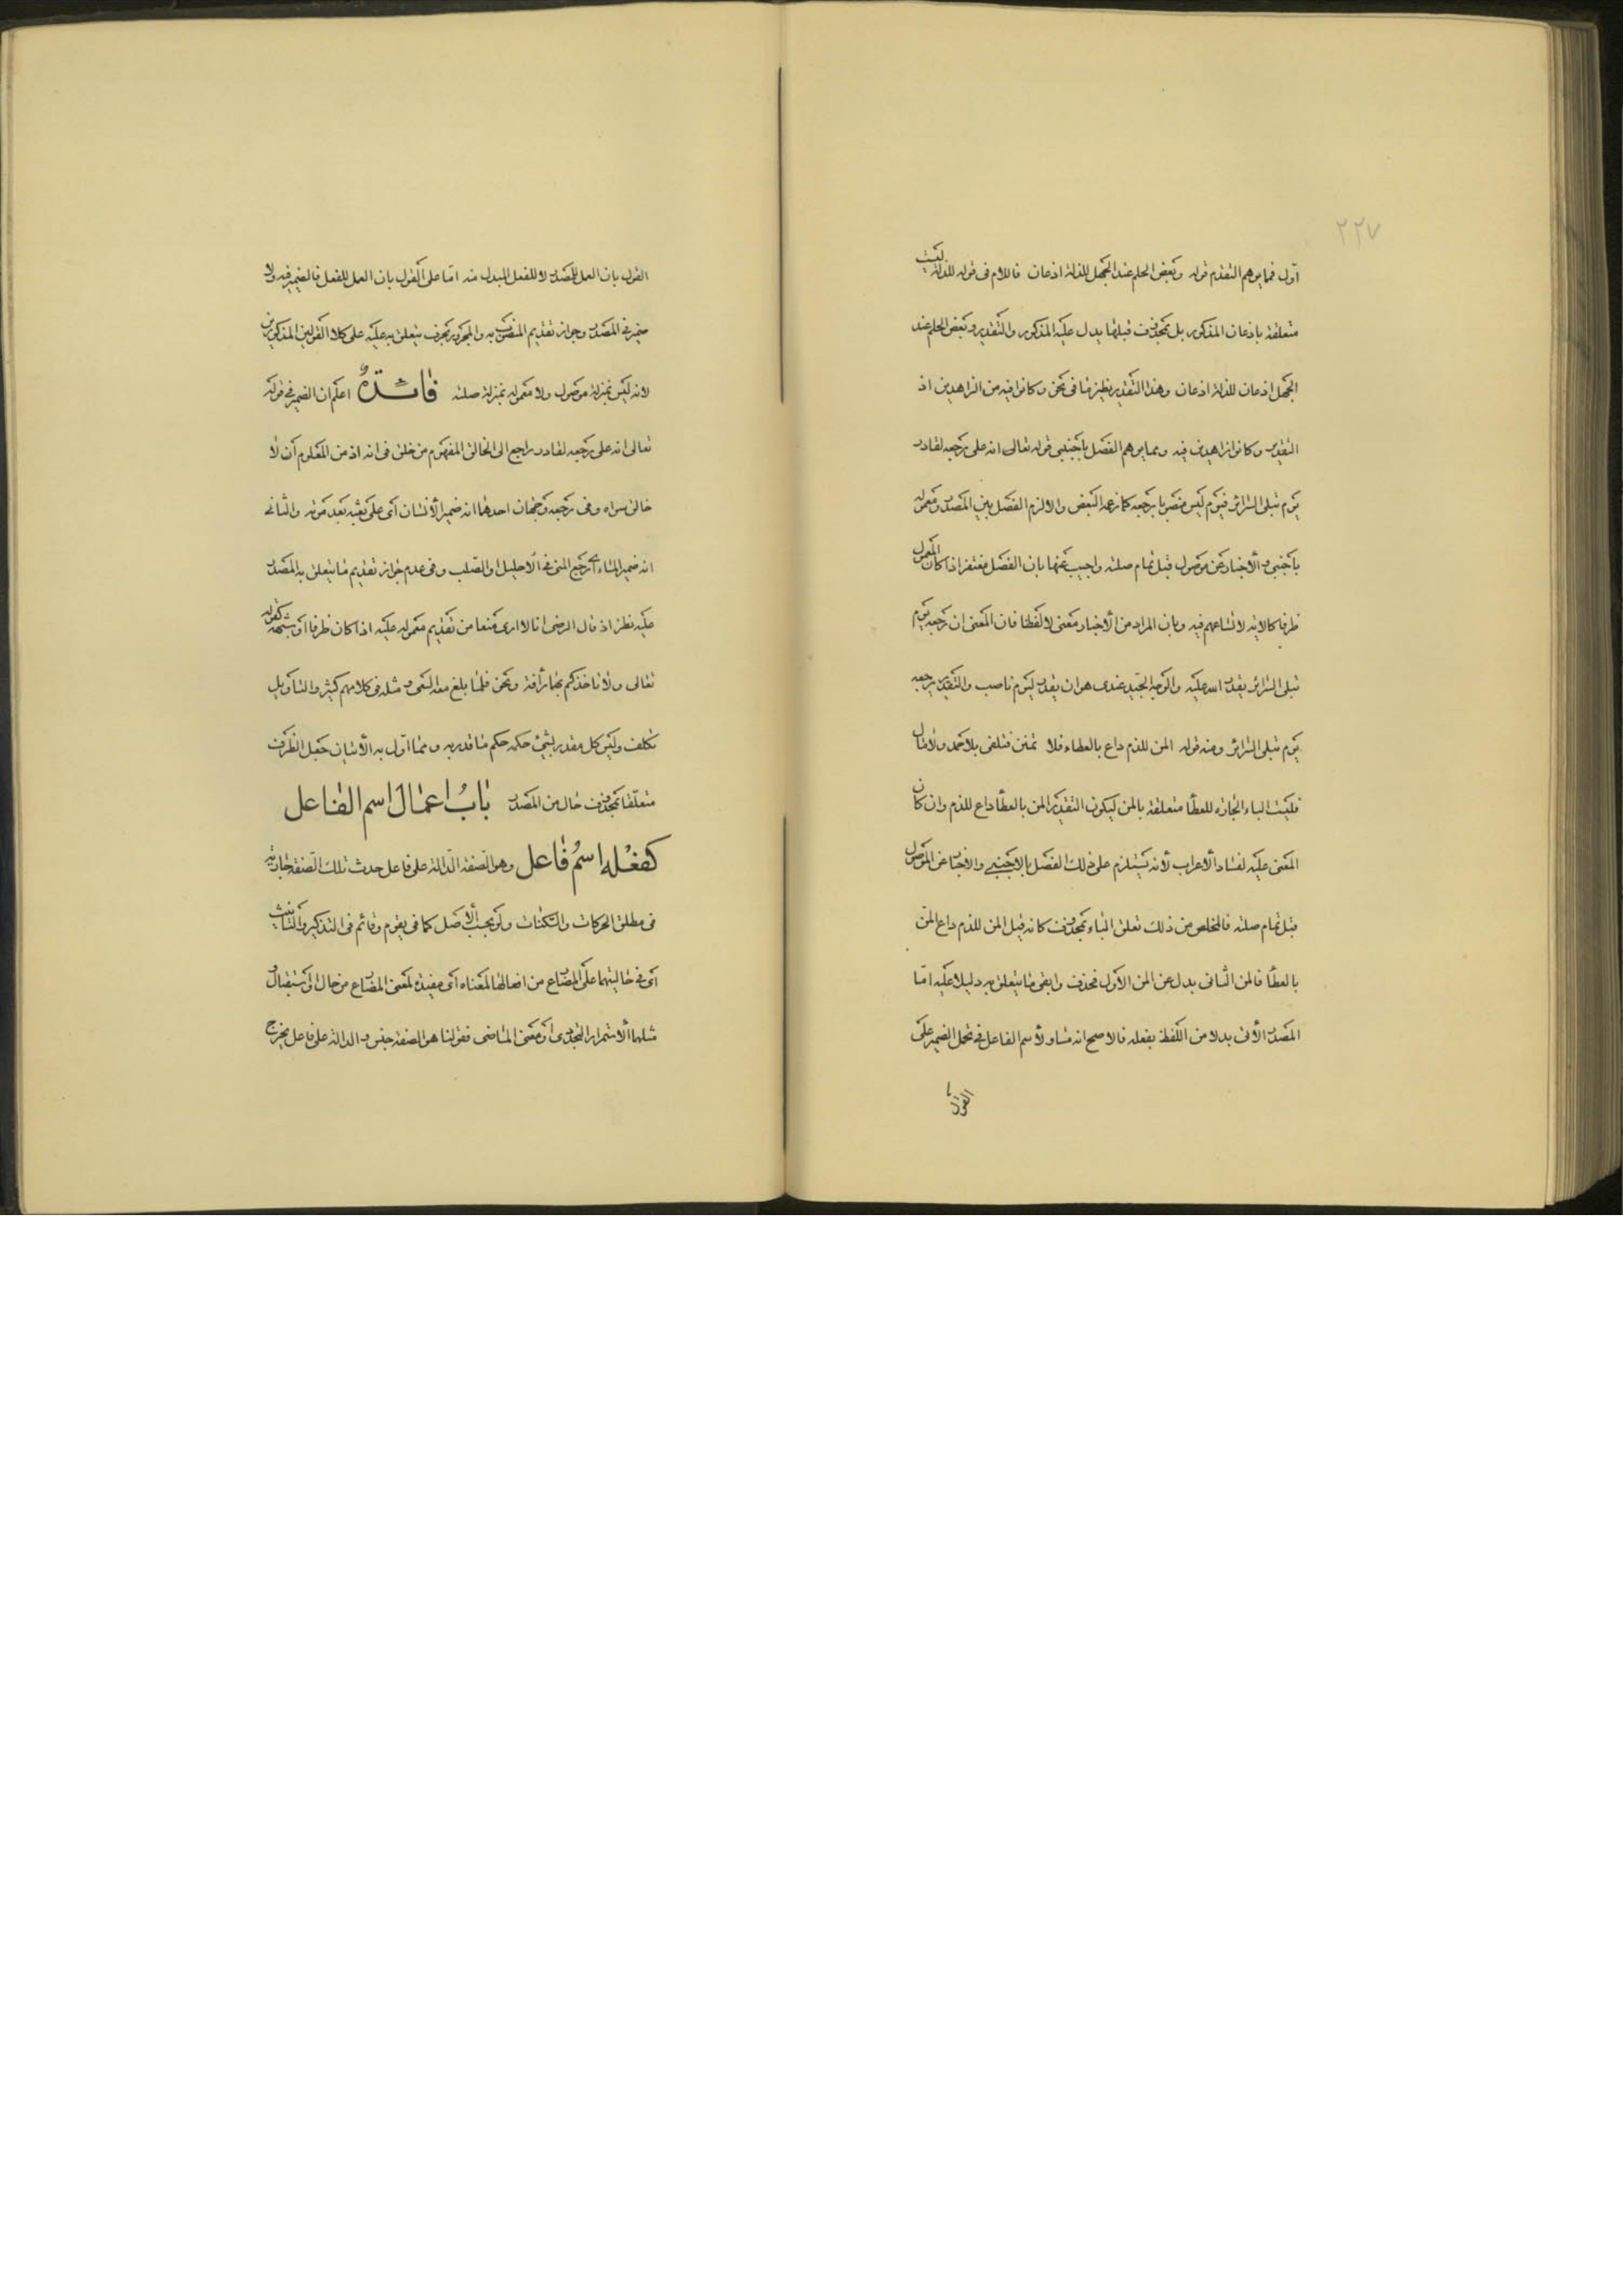 ٢٢٧
اول فمما يوهم التقدم قوله وبعض الحلم عند الجهل للذلة اذعان فاللام فى قوله للذلة ليست
متعلقة باذعان المذكور بل بمحذوف قبلها يدل عليه المذكور والتقدير وبعض الحلم عند
الجهل اذعان للذلة اذعان وهذا التقدير نظير ما فى نحو وكانوا فيه من الزاهدين اذ
التقدير وكانوا زاهدين فيه ومما يوهم الفصل باجنبى قوله تعالى انه على رجعه لقادر
يوم تبلى السرائر فيوم ليس منصوبا برجعه كما زعمه البعض والا لزم الفصل بين المصدر ومعموله
باجنبى والاخبار عن موصول قبل تمام صلته واجيب عنها بان الفصل مغتفر اذا كان المعمول
ظرفا كالاية لاتساعهم فيه وبان المراد من الاخبار معنى لا لفظا فان المعنى ان رجعه يوم
تبلى السرائر يقدر الله عليه والوجه الجيد عندى هو ان يقدر ليوم ناصب والتقدير يرجعه
يوم تبلى السرائر ومنه قوله المن للذم داع بالعطاء فلا تمنن فتلفى بلا حمد ولا مال
فليست الباء الجارة للعطا متعلقة بالمن ليكون التقدير المن بالعطا داع للذم وان كان
المعنى عليه لفساد الاعراب لانه يستلزم على ذلك الفصل بالاجنبى والاخبار عن الموصول
قبل تمام صلته فالمخلص من ذلك تعلق الباء بمحذوف كانه قيل المن للذم داع المن
بالعطا فالمن الثانى بدل عن المن الاول فحذف وابقى ما يتعلق به دليلا عليه اما
المصدر الاتى بدلا من اللفظ بفعله فالاصح انه مساو لاسم الفاعل فى تحمل الضمير على
القول
القول بان العمل للمصدر لا للفعل المبدل منه اما على القول بان العمل للفعل فالضمير فيه ولا
ضمير فى المصدر وجواز تقديم المنصوب به والمجرور بحرف يتعلق به عليه على كلا القولين المذكورين
لانه ليس بمنزلة موصول ولا معموله بمنزلة صلته فائدة اعلم ان الضمير فى قوله
تعالى انه على رجعه لقادر راجع الى الخالق المفهوم من خلق فى انه اذ من المعلوم أن لا
خالق سواه وفى رجعه وجهان احدهما انه ضمير الانسان أى على بعثه بعد موته والثانى
انه ضمير الماء اى رجع المنى فى الاحليل او الصلب وفى عدم جواز تقديم ما يتعلق به المصدر
عليه نظر اذ قال الرضى انا لا ارى منعا من تقديم معموله عليه اذا كان ظرفا او شبهه كقوله
تعالى ولا تاخذكم بهما رأفة ونحو فلما بلغ معه السعى ومثله فى كلامهم كثير والتأويل
تكلف وليس كل مقدر بشئ حكمه حكم ما قدر به ومما اول به الاتيان جعل الظرف
متعلقا بمحذوف حال من المصدر بابُ اعمَال اسم الفاعل
كفعْله اسمُ فاعل وهو الصفة الدالة على فاعل حدث تلك الصفة جارية
فى مطلق الحركات والسكنات ولو بحسب الاصل كما فى يقوم وقائم فى التذكير والتانيث
اى فى حالتيهما على المضارع من افعالها لمعناه اى مفيدة لمعنى المضارع من حال او استقبال و
مثلهما الاستمرار التجددى او معنى الماضى فقولنا هو الصفة جنس والدالة على فاعل يخرج